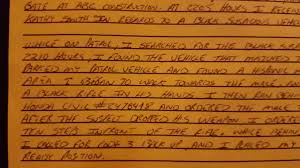 GATE AT ABC CONSTRUCTION. AT 2205 HOURS I RECEIV
KATHY SMITH IN REGARDS TO A BLACK SUSPICIOUS VEHIC
WHILE ON PATROL, I SEARCHED FOR THE BLACK
2210 HOURS, I FOUND THE VEHICLE THAT MATCHED
PARKED MY PATROL VEHICLE AND FOUND A HISPANIC
AREA. I BEGAN TO WALK TOWARDS THE MALE AN
A BLACK RIFLE IN HIS HANDS. I THEN RAN BEHIN
HONDA CIVIC AND ORDERED THE MALE
AFTER THE SUSPECT DROPPED HIS WEAPON I ORDERE
TEN STEPS INFRONT OF THE RIFLE WHILE
I CALLED FOR CODE 3 BACK UP AND I
POSITION.